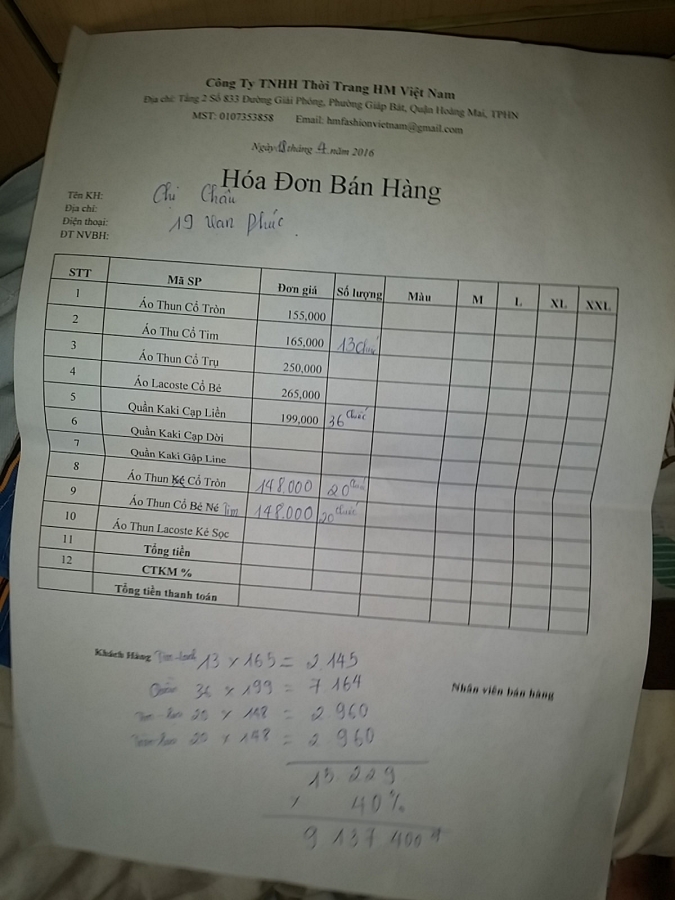 Công Ty TNHH Thời Trang HM Việt Nam
Địa chỉ: Tầng 2 Số 833 Đường Giải Phóng, Phường Giáp Bát, Quận Hoàng Mai, TPHN
MST: 0107353858 Email: hmfashionvietnam@gmail.com
Ngày tháng 4 năm 2016
Hóa Đơn Bán Hàng
Tên KH: Chị Châu
Địa chỉ: 19 Vạn Phúc
Điện thoại:
ĐT NVBH:
STT Mã SP Đơn giá Số lượng Màu M L XL XXL
1 Áo Thun Cổ Tròn 155,000
2 Áo Thu Cổ Tim 165,000 13 Chiếc
3 Áo Thun Cổ Trụ 250,000
4 Áo Lacoste Cổ Bẻ 265,000
5 Quần Kaki Cạp Liền 199,000 36 Chiếc
6 Quần Kaki Cạp Dời
7 Quần Kaki Gập Line
8 Áo Thun Kẻ Cổ Tròn 148.000 20 Chiếc
9 Áo Thun Cổ Bẻ Né Tim 148.000 20 chiếc
10 Áo Thun Lacoste Kẻ Sọc
11 Tổng tiền
12 CTKM %
Tổng tiền thanh toán
Khách Hàng 13 x 165 = 2 145
Nhân viên bán hàng
Quần 36 x 199 = 7 164
20 x 148 = 2 960
20 x 148 = 2 960
15 229
x 40%
9 137 400đ